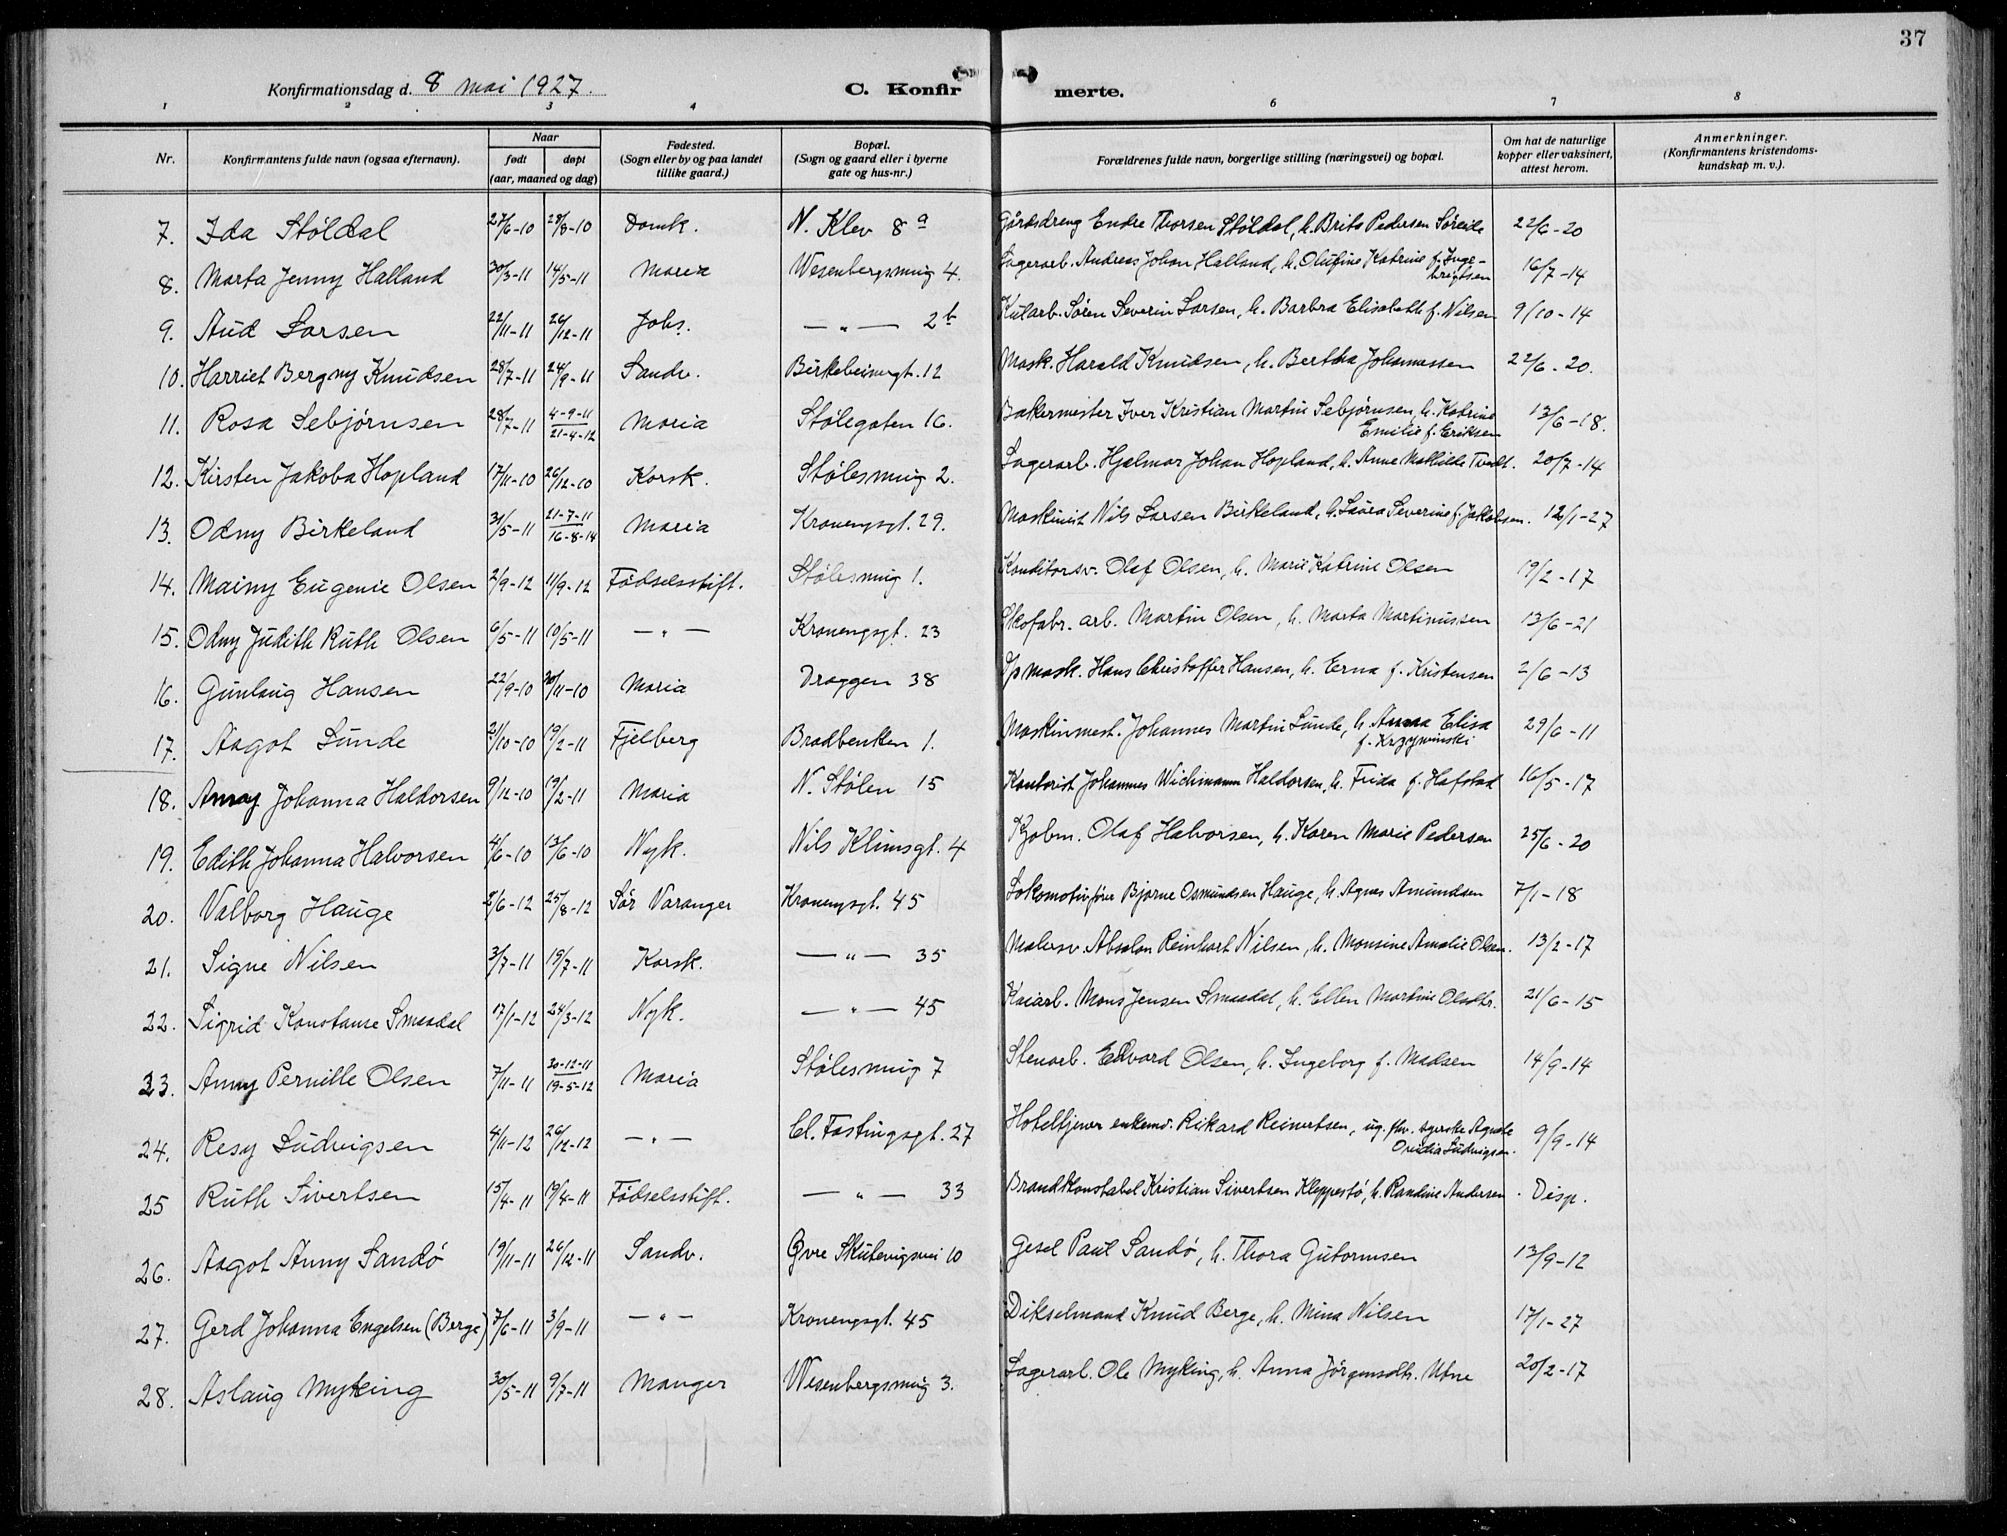 37
Konfirmationsdag d. 8 mai 1927. C. Konfir merte.
1 2 3 4 6 7 8
Nr. Konfirmantens fulde navn (ogsaa efternavn). Naar født døpt (aar, maaned og dag) Fødested. (Sogn eller by og paa landet tillike gaard.) Bopæl. (Sogn og gaard eller i byerne gate og hus-nr.) Forældrenes fulde navn, borgerlige stilling (næringsvei) og bopæl. Om hat de naturlige kopper eller vaksinert, attest herom. Anmerkninger. (Konfirmantens kristendoms- kundskap m. v.).
7. Ida Støldal 27/6-10 28/8-10 Domk. N. Klev 8 a Gårdsdreng Endre Thorsen Støldal, h. Brita Pedersen Søreide 22/6-20
8. Marta Jenny Halland 30/3-11 14/5-11 Maria Wesenbergsmug 4. Lagerarb. Andreas Johan Halland, h. Olufine Katrine f. Inge-
brigtsen 16/7-14
9. Aud Larsen 22/11-11 26/12-11 Johs. —"— 2b Kularb. Søren Severin Larsen, h. Barbra Elisabeth f. Nilsen 9/10-14
10. Harriet Bergny Knudsen 28/7-11 24/9-11 Sandv. Birkebeinergt. 12 Mask. Harald Knudsen, h. Bertha Johannassen 22/6-20.
11. Rosa Sebjørnsen 28/7-11 4-9-11 21-4-12 Maria Stølegaten 16. Bakermester Iver Kristian Martin Sebjørnsen, h. Katrine
Emilie f. Eriksen 13/6-18.
12. Kirsten Jakoba Hopland 17/11-10 26/12-10 Korsk. Stølesmug 2. Lagerarb. Hjalmar Johan Hopland, h. Anne Mathilde Tvedt. 20/7-14
13. Odny Birkeland 31/5-11 21-7-11 16-8-14 Maria Kronengsgt. 29. Maskinist Nils Larsen Birkeland, h. Laura Severine f. Jakobsen. 12/1-27
14. Mainy Eugenie Olsen 2/9-12 11/9-12 Fødselsstift. Stølesmug 1. Konditorsv. Olaf Olsen, h. Marie Katrine Olsen 19/2-17
15. Odny Judith Ruth Olsen 6/5-11 10/5-11 —"— Kronengsgt. 23 Skofabr. arb. Martin Olsen, h. Marta Martinussen 13/6-21
16. Gunlaug Hansen 22/9-10 20/11-10 Maria Draggen 38 D/p mask. Hans Christoffer Hansen, h. Erna f. Kristensen 2/6-13
17. Aagot Lunde 21/10-10 19/2-11 Fjelberg Bradbenken 1. Maskinmest. Johannes Martin Lunde, h. Anna Elisa
f. Krzywinski 29/6-11
18. Annay Johanna Haldorsen 9/12-10 19/2-11 Maria N. Stølen 15 Kontorist Johannes Wichmann Haldorsen, h. Frida f. Hafstad 16/5-17
19. Edith Johanna Halvorsen 4/6-10 13/6-10 Nyk. Nils Klimsgt. 4 Kjobm. Olaf Halvorsen, h. Karen Marie Pedersen 25/6-20
20. Valborg Hauge 2/6-12 25/8-12 Sør Varanger Kronengsgt. 45 Lokomotivfører Bjarne Osmundsen Hauge, h. Agnes Amundsen 7/1-18
21. Signe Nilsen 3/7-11 19/7-11 Korsk. —"— 35 Malersv. Absalon Reinhart Nilsen, h. Monsine Amalie Olsen. 13/2-17
22. Sigrid Konstanse Smaadal 17/1-12 24/3-12 Nyk. —"— 45 Kaiarb. Mons Jensen Smaadal, h. Ellen Martine Olsdtr. 21/6-15
23. Anny Pernille Olsen 7/11-11 30-12-11 19-5-12 Maria Stølesmug 7 Stenarb. Edvard Olsen, h. Ingeborg f. Madsen 14/9-14
24. Resy Ludvigsen 4/11-12 26/12-12 —"— Cl. Fastingsgt. 27 Hoteltjener enkem. Rikard Reinertsen, ug. syerske Agnete
Ovidia Ludvigsen. 9/9-14
25 Ruth Sivertsen 15/4-11 19/4-11 Fødselsstift. —"— 33 Brandkonstabel Kristian Sivertsen Kleppestø, h. Randine Andersen. Disp.
26. Aagot Anny Sandø 19/11-11 26/12-11 Sandv. Øvre Skutevigsvei 10 Gesel Paul Sandø, h. Thora Gutormsen 13/9-12
27. Gerd Johanna Engelsen (Berge) 7/6-11 3/9-11 —"— Kronengsgt. 45 Dikselmand Knud Berge, h. Mina Nilsen 17/1-27
28. Aslaug Myking 30/5-11 9/7-11 Manger Wesenbergsmug 3. Lagerarb. Ole Myking, h. Anna Jørgensdtr. Utne 20/2-17